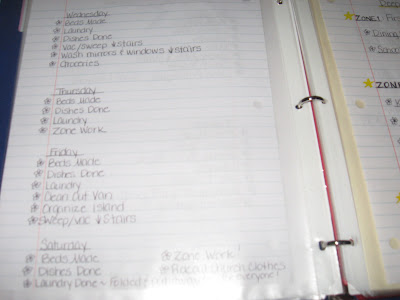 Wednesday
Beds Made
Laundry
Dishes Done
Vac/Sweep & Stairs
Wash mirrors & windows & stairs
Groceries
Thursday
Beds Made
Dishes Done
Laundry
Zone Work
Friday
Beds Made
Dishes Done
Laundry
Clean Out Van
Organize Island
Sweep/vac & Stairs
Saturday
Beds Made
Dishes Done
Laundry Done ~
Zone Work!
church clothes
everyone!
ZONE 1
ZONE